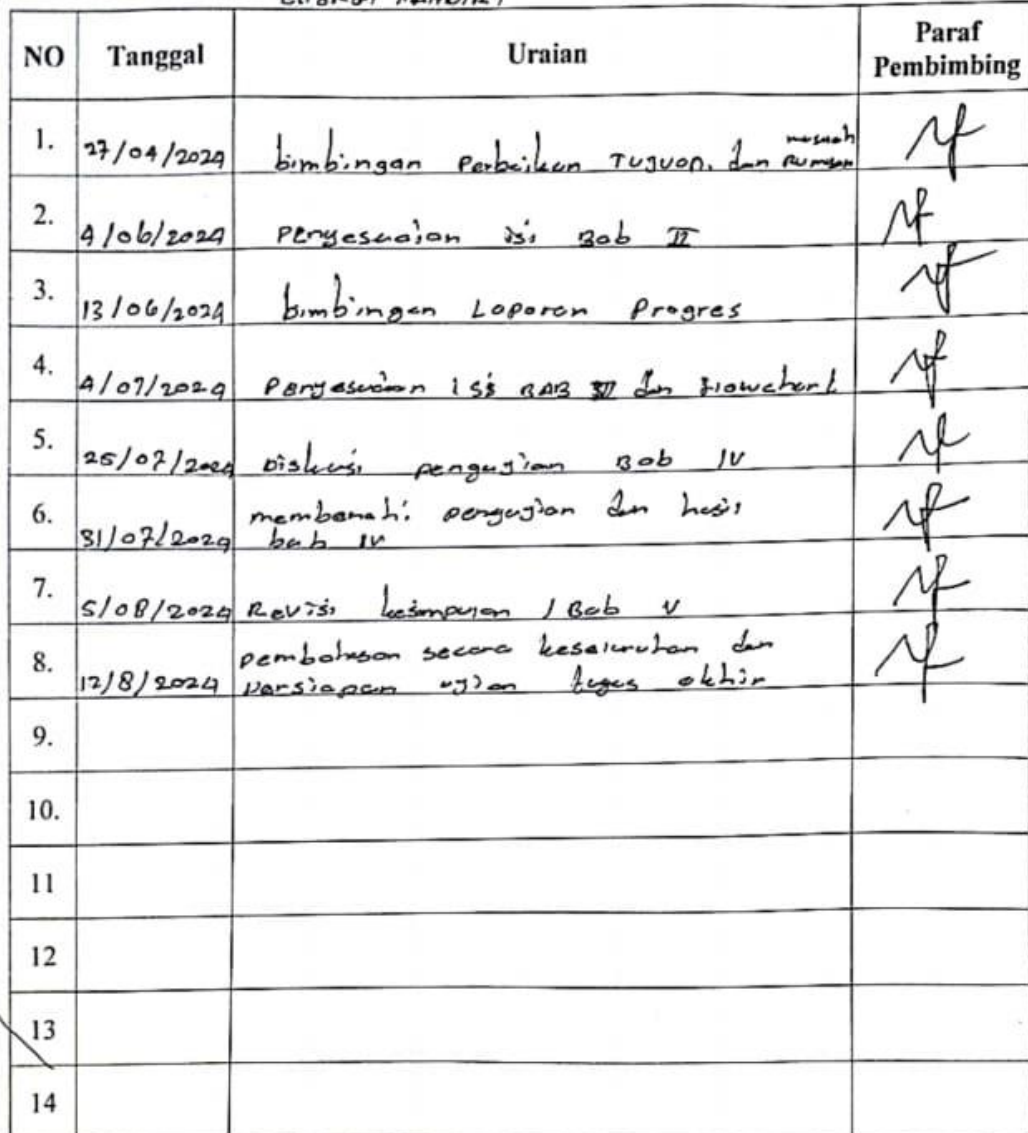 NO Tanggal Uraian Paraf Pembimbing
1. 27/04/2024 bimbingan Perbaikan Tujuan, dan Rumusan masalah
2. 4/06/2024 Penyesuaian isi Bab II
3. 13/06/2024 bimbingan Laporan Progres
4. 4/07/2024 Penyesuaian isi BAB III dan Flowchart
5. 25/07/2024 Diskusi pengujian Bab IV
6. 31/07/2024 membenahi pengujian dan hasil
bab IV
7. 5/08/2024 Revisi kesimpulan / Bab V
8. 12/8/2024 pembahasan secara keseluruhan dan
persiapan ujian tugas akhir
9.
10.
11
12
13
14